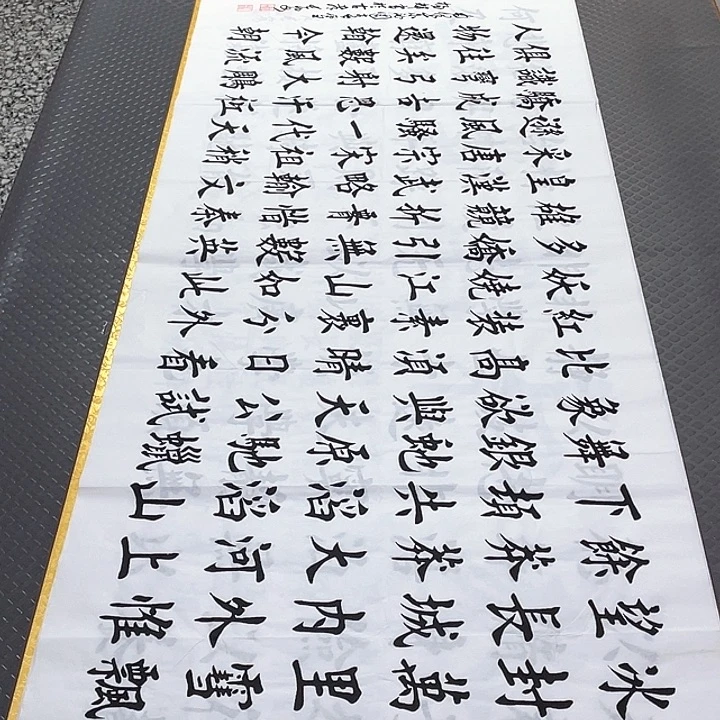 冰封萬里雪飄
望長城內外惟
餘莽莽大河上
下頓失滔滔山
舞銀蛇原馳蠟
象欲與天公試
比高須晴日看
紅裝素裹分外
妖嬈江山如此
多嬌引無數英
雄競折腰惜秦
皇漢武略輸文
采唐宗宋祖稍
遜風騷一代天
驕成吉思汗只
識彎弓射大鵰
俱往矣數風流
人物還看今朝